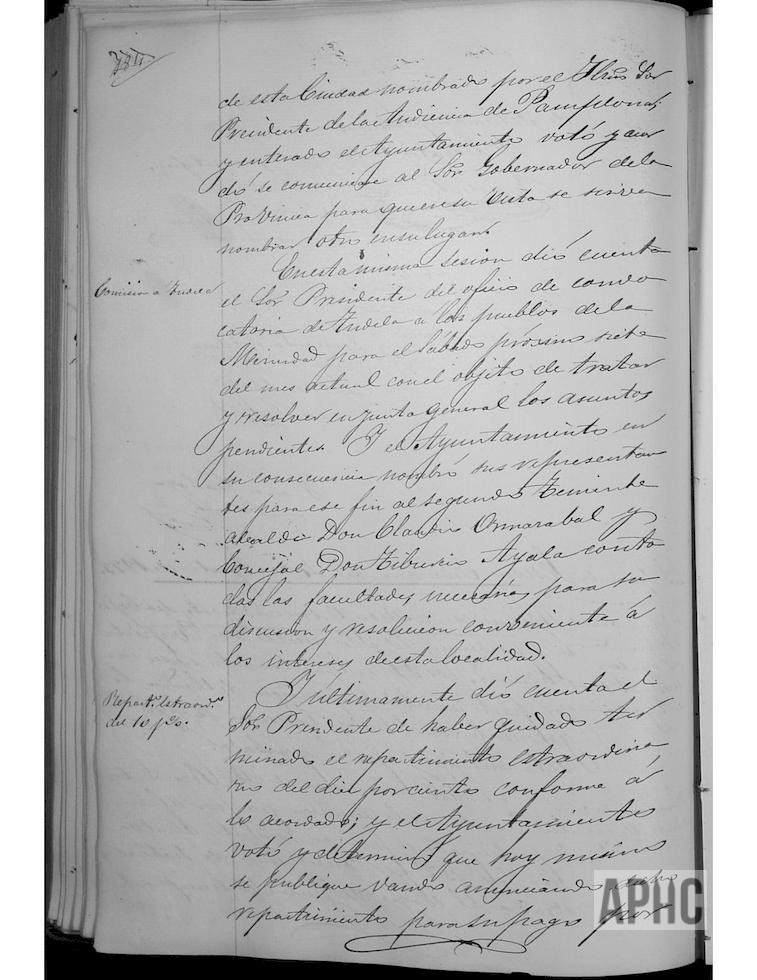 de esta Ciudad nombrado por el Ilmo Sor
Presidente de la Audiencia de Pamplona;
y enterado el Ayuntamiento votó y acor
dó se comunicase al Sor Gobernador de la
Provincia para que en su vista se sirva
nombrar otro en su lugar.
Comision a Tudela
En esta misma sesion dió cuenta
el Sor Presidente del oficio de convo
catoria de Tudela a los pueblos de la
Merindad para el Sábado próximo siete
del mes actual con el objeto de tratar
y resolver en junta general los asuntos
pendientes. Y el Ayuntamiento en
su consecuencia nombró sus representan
tes para ese fin al segundo Teniente
alcalde Don Claudio Ormazabal y
Concejal Don Tiburcio Ayala con to
das las facultades necesarias para su
discusion y resolucion conveniente á
los intereses de esta localidad.
Repartº. Estraordº.
del 10 p%.
Y ultimamente dió cuenta el
Sor Presidente de haber quedado ter
minado el repartimiento estraordina
rio del diez por ciento conforme á
lo acordado; y el Ayuntamiento
votó y determinó que hoy mismo
se publique vando anunciando dicho
repartimiento para su pago por
APHC